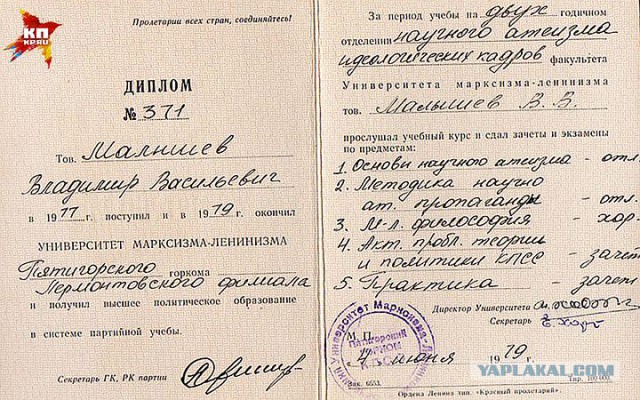 КП
KP.RU
Пролетарии всех стран, соединяйтесь!
ДИПЛОМ
№ 371
Тов. Малышев
Владимир Васильевич
в 1977 г. поступил и в 1979 г. окончил
УНИВЕРСИТЕТ МАРКСИЗМА-ЛЕНИНИЗМА
Пятигорского горкома
Лермонтовского филиала
и получил высшее политическое образование
в системе партийной учебы.
Секретарь ГК, РК партии
За период учебы на двух годичном
отделении научного атеизма
идеологических кадров факультета
Университета марксизма-ленинизма
тов. Малышев В. В.
прослушал учебный курс и сдал зачеты и экзамены
по предметам:
1. Основы научного атеизма - отл.
2. Методика научно
ат. пропаганды - отл.
3. М-л. философия - хор.
4. Акт. пробл. теории
и политики КПСС - зачет
5. Практика - зачет
Директор Университета
Секретарь
М. П.
4 июня 1979 г.
Университет Марксизма-
Пятигорский
ГОРКОМ
КПСС
Зак. 6553.
Тир. 100 000.
Ордена Ленина тип. «Красный пролетарий».
YAPLAKAL.COM